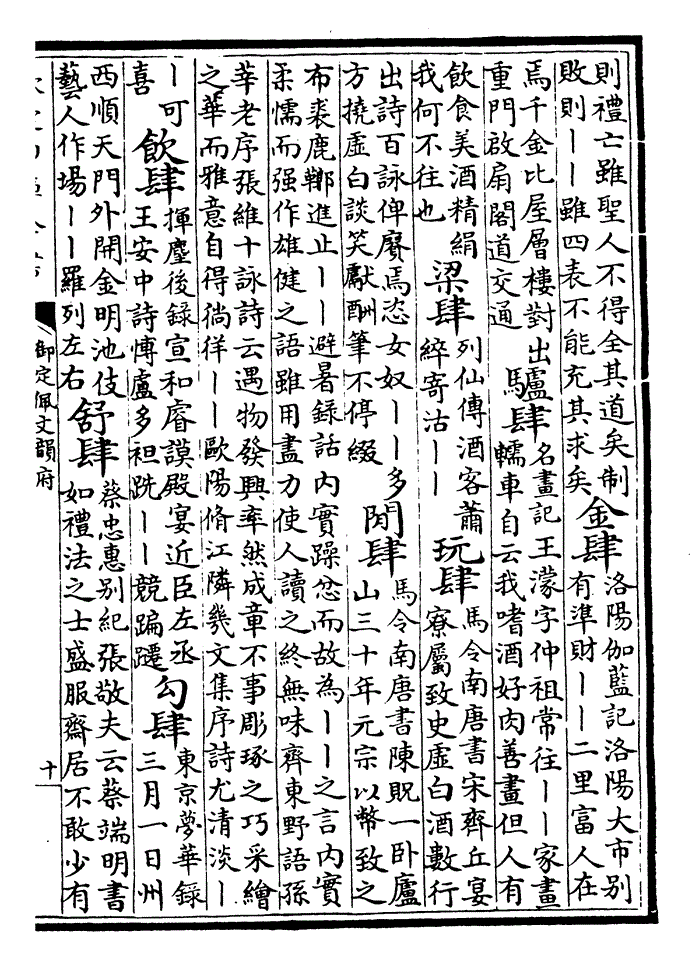 則禮亡雖聖人不得全其道矣制
敗則——雖四表不能充其求矣
金肆
洛陽伽藍記洛陽大市别
有準財——二里富人在
焉千金比屋層樓對出
重門啟扇閣道交通
驢肆
名畫記王濛字仲祖常往——家畫
轜車自云我嗜酒好肉善畫但人有
飲食美酒精絹
我何不往也
梁肆
列仙傳酒客蕭
綷寄沽——
玩肆
馬令南唐書宋齊丘宴
寮屬致史虛白酒數行
出詩百詠俾賡焉恣女奴——多
方撓虛白談笑獻酬筆不停綴
閒肆
馬令南唐書陳貺一卧廬
山三十年元宗以幣致之
布裘鹿鞹進止——避暑録話内實躁忿而故為——之言内實
柔懦而强作雄健之語雖用盡力使人讀之終無味齊東野語孫
莘老序張維十詠詩云遇物發興率然成章不事彫琢之巧采繪
之華而雅意自得徜徉——歐陽脩江隣幾文集序詩尤清淡—
—可
喜
飲肆
揮麈後録宣和睿謨殿宴近臣左丞
王安中詩慱盧多袒跣——競蹁躚
勾肆
東京夢華録
三月一日州
西順天門外開金明池伎
藝人作場——羅列左右
舒肆
蔡忠惠别紀張敬夫云蔡端明書
如禮法之士盛服齋居不敢少有
御定佩文韻府
十